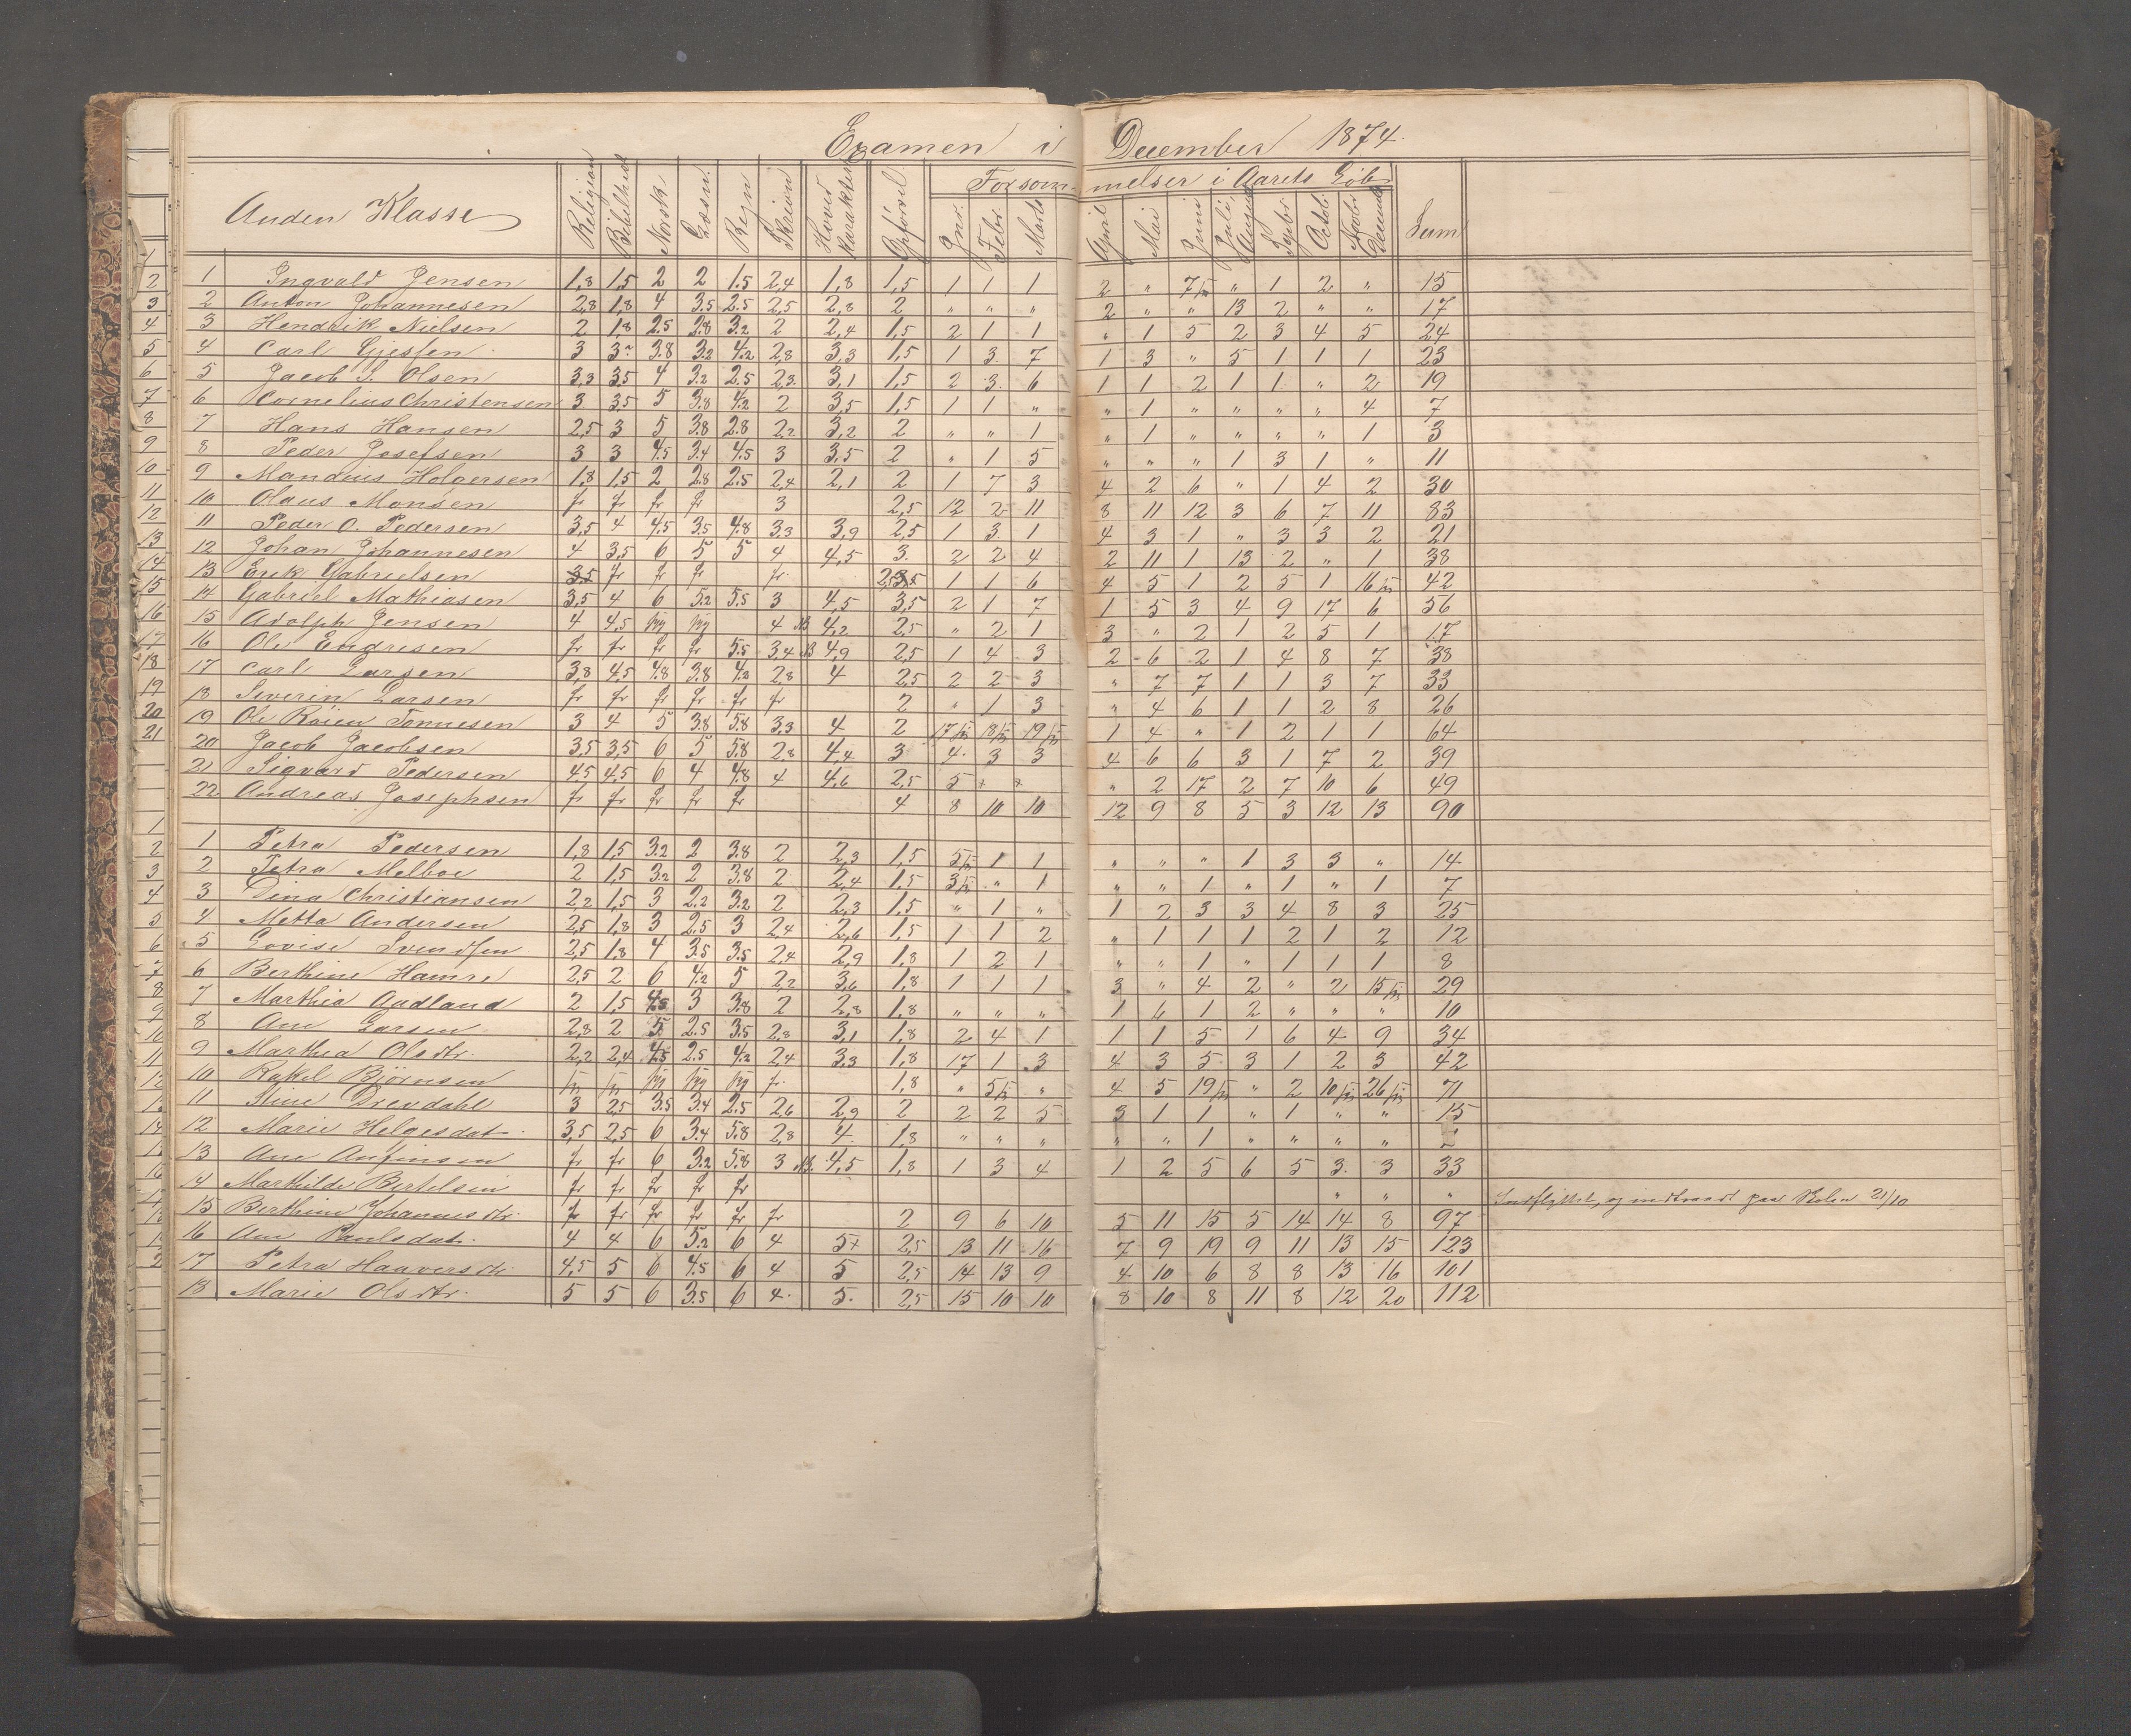 Examen i December 1874.
Anden Klasse Religion Bibelhist Norsk Læsn. Regn Skrivn Hoved Karakter Opførsel Forsømmelser i Aarets Løb Jnr. Febr. Marts April Mai Juni Juli August Septbr Octob. Novbr Decemb Sum
1 Ingvald Jensen 1,8 1,5 2 2 1.5 2,4 1,8 1,5 1 1 1 2 " 7/s " 1 2 " 15
2 Anton Johannesen 2,8 1,8 4 3.5 2.5 2,5 2,8 2 " " " 2 " " 13 2 " " 17
3 Hendrik Nielsen 2 1,8 2.5 2.8 3.2 2 2,4 1,5 2 1 1 " 1 5 2 3 4 5 24
4 Carl Gjesten 3 3 3.8 3.2 4.2 2,8 3,3 1,5 1 3 7 1 3 " 5 1 1 1 23
5 Jacob S. Olsen 3,3 3,5 4 3.2 2.5 2,3 3,1 1,5 2 3 6 1 1 2 1 1 " 2 19
6 Cornelius Christensen 3 3,5 5 3.8 4.2 2 3,5 1,5 1 1 " " 1 " " " " 4 7
7 Hans Hansen 2,5 3 5 3.8 2.8 2,2 3,2 2 " " 1 " 1 " " " " 1 3
8 Peder Josefsen 3 3 4.5 3.4 4.5 3 3,5 2 " 1 5 " " " 1 3 1 " 11
9 Mandius Holgersen 1,8 1,5 2 2.8 2.5 2,4 2,1 2 1 7 3 4 2 6 " 1 4 2 30
10 Olaus Monsen fr fr fr fr 3 2,5 12 2 11 8 11 12 3 6 7 11 83
11 Peder O. Pedersen 3,5 4 4,5 3.5 4.8 3,3 3,9 2,5 1 3 1 4 3 1 " 3 3 2 21
12 Johan Johannesen 4 3,5 6 5 5 4 4,5 3. 2 2 4 2 11 1 13 2 " 1 38
13 Erik Gabrielsen 3,5 fr fr fr fr 1 1 6 4 5 1 2 5 1 16 42
14 Gabriel Mathiasen 3,5 4 6 5.2 5.5 3 4,5 3,5 2 1 7 1 5 3 4 9 17 6 56
15 Adolph Jensen 4 4,5 4 NB 4,2 2,5 " 2 1 3 " 2 1 2 5 1 17
16 Ole Endresen fr fr fr fr 5.5 3,4 NB 4,9 2,5 1 4 3 2 6 2 1 4 8 7 38
17 Carl Larsen 3,8 4,5 4.8 3.8 4.2 2,8 4 2,5 2 2 3 " 7 7 1 1 3 7 33
18 Severin Larsen fr fr fr fr fr fr 2 " 1 3 " 4 6 1 1 2 8 26
19 Ole Røien Tønnesen 3 4 5 3.8 5.8 3,3 4 2 17 18 19 1 4 " 1 2 1 1 64
20 Jacob Jacobsen 3,5 3,5 6 5 5.8 2,8 4,4 3 4. 3 3 4 6 6 3 1 7 2 39
21 Sigvard Pedersen 4,5 4,5 6 4 4.8 4 4,6 2,5 5 " 2 17 2 7 10 6 49
22 Andreas Josephsen fr fr fr fr fr 4 8 10 10 12 9 8 5 3 12 13 90
1 Petra Pedersen 1,8 1,5 3.2 2 3.8 2 2,3 1,5 5 1 1 " " " 1 3 3 " 14
2 Petra Melboe 2 1,5 3.2 2 3.8 2 2,4 1,5 3 " 1 " " 1 " 1 " 1 7
3 Dina Christiansen 2,2 1,5 3 2.2 3.2 2 2,3 1,5 " 1 " 1 2 3 3 4 8 3 25
4 Metta Andersen 2,5 1,8 3 2.5 3 2,4 2,6 1,5 1 1 2 " 1 1 1 2 1 2 12
5 Lovise Svendsen 2,5 1,8 4 3.5 3.5 2,4 2,9 1,8 1 2 1 " " 1 " 1 1 1 8
6 Berthine Hamre 2,5 2 6 4.2 5 2,2 3,6 1,8 1 1 1 3 " 4 2 " 2 15 29
7 Marthia Aadland 2 1,5 4.5 3 3.8 2 2,8 1,8 " " " 1 6 1 2 " " " 10
8 Ane Larsen 2,8 2 5 2.5 3.5 2,8 3,1 1,8 2 4 1 1 1 5 1 6 4 9 34
9 Marthea Olsdtr. 2,2 2,4 4.5 2.5 4.2 2,4 3,3 1,8 17 1 3 4 3 5 3 1 2 3 42
10 Rakel Bjørnsen fr. 1,8 " 5 " 4 5 19 " 2 10 26 71
11 Stine Drevdahl 3 2,5 3.5 3.4 2.5 2,6 2,9 2 2 2 5 3 1 1 " 1 " " 15
12 Marie Helgesdat. 3,5 2,5 6 3.4 5.8 2,8 4 1,8 " " " " " 1 " " " "
13 Ane Anfinsen fr fr 6 3.2 5.8 3 NB. 4,5 1,8 1 3 4 1 2 5 6 5 3. 3 33
14 Marthilde Bertelsen fr fr fr fr fr " " " Indflyttet, og indtraadt paa Skolen 21/10
15 Berthine Johannesdtr. fr fr fr fr fr fr 2 9 6 10 5 11 15 5 14 14 8 97
16 Ane Paulsdat. 4 4 6 5.2 6 4 5+ 2,5 13 11 16 7 9 19 9 11 13 15 123
17 Petra Haaversdt. 4,5 5 6 4.5 6 4 5 2,5 14 13 9 4 10 6 8 8 13 16 101
18 Marie Olsdtr. 5 5 6 3.5 6 4. 5. 2,5 15 10 10 8 10 8 11 8 12 20 112